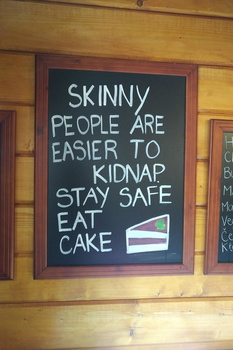 SKINNY
PEOPLE ARE
EASIER TO
KIDNAP
STAY SAFE
EAT
CAKE